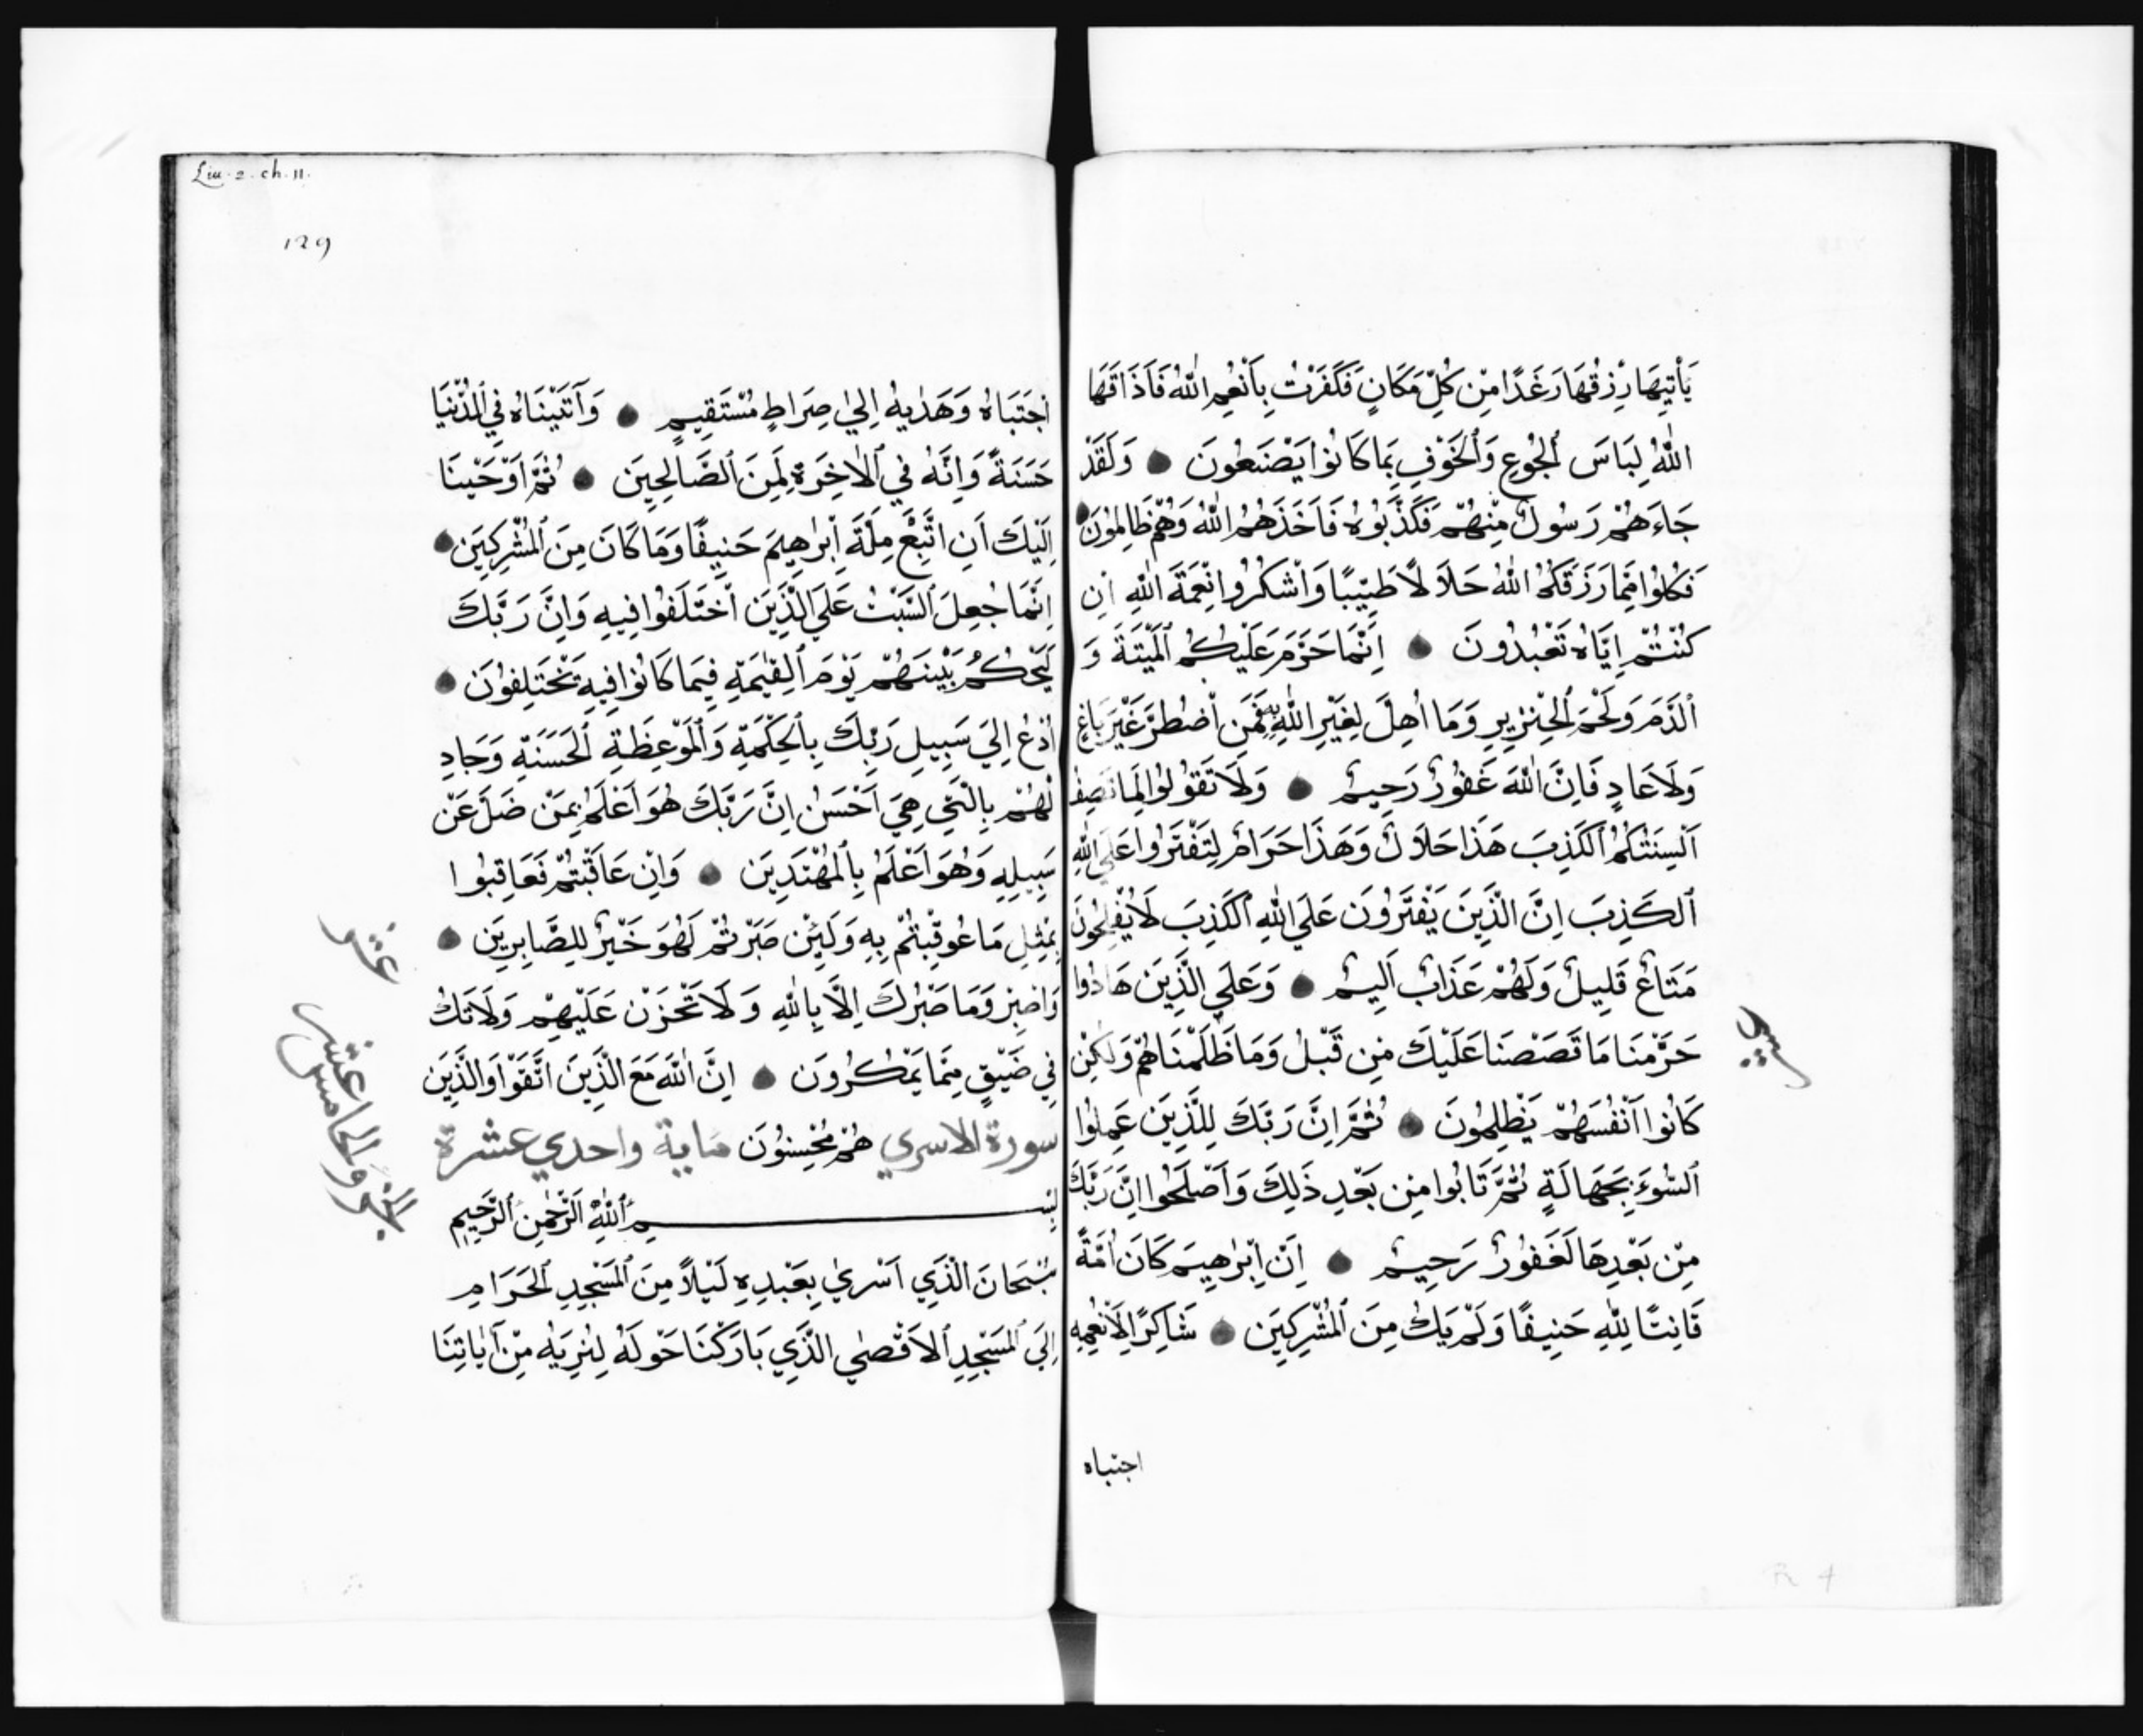 يَأْتِيهَا رِزْقُهَا رَغَدًا مِن كُلِّ مَكَانٍ فَكَفَرَتْ بِأَنْعُمِ اللّٰهِ فَاَذَاقَهَا
اللّٰهُ لِبَاسَ الْجُوعِ وَالْخَوْفِ بِمَا كَانُوا يَصْنَعُونَ وَلَقَدْ
جَاءَهُمْ رَسُولٌ مِنْهُمْ فَكَذَّبُوهُ فَاَخَذَهُمُ اللّٰهُ وَهُمْ ظَالِمُونَ
فَكُلُوا مِمَّا رَزَقَكُمُ اللّٰهُ حَلَالًا طَيِّبًا وَاشْكُرُوا نِعْمَةَ اللّٰهِ اِن
كُنْتُمْ اِيَّاهُ تَعْبُدُونَ اِنَّمَا حَرَّمَ عَلَيْكُمُ الْمَيْتَةَ وَ
الْدَّمَ وَلَحْمَ الْخِنْزِيرِ وَمَا اُهِلَّ لِغَيْرِ اللّٰهِ بِهِ فَمَنِ اضْطُرَّ غَيْرَ بَاغٍ
وَلَا عَادٍ فَاِنَّ اللّٰهَ غَفُورٌ رَحِيمٌ وَلَا تَقُولُوا لِمَا تَصِفُ
اَلْسِنَتُكُمُ الْكَذِبَ هَذَا حَلَالٌ وَهَذَا حَرَامٌ لِتَفْتَرُوا عَلَى اللّٰهِ
الْكَذِبَ اِنَّ الَّذِينَ يَفْتَرُونَ عَلَي اللّٰهِ الْكَذِبَ لَا يُفْلِحُونَ
مَتَاعٌ قَلِيلٌ وَلَهُمْ عَذَابٌ اَلِيمٌ وَعَلَي الَّذِينَ هَادُوا
حَرَّمْنَا مَا قَصَصْنَا عَلَيْكَ مِن قَبْلُ وَمَا ظَلَمْنَاهُمْ وَلَكِنْ
كَانُوا اَنْفُسَهُمْ يَظْلِمُونَ ثُمَّ اِنَّ رَبَّكَ لِلَّذِينَ عَمِلُوا
السُّوءَ بِجَهَالَةٍ ثُمَّ تَابُوا مِن بَعْدِ ذَلِكَ وَاَصْلَحُوا اِنَّ رَبَّكَ
مِنْ بَعْدِهَا لَغَفُورٌ رَحِيمٌ اِنَّ اِبْرٰهِيمَ كَانَ اُمَّةً
قَانِتًا لِلّٰهِ حَنِيفًا وَلَمْ يَكُ مِنَ الْمُشْرِكِينَ شَاكِرًا لِاَنْعُمِهِ
اجتباه
Liu. 2. ch. 11.
129
اجْتَبَاهُ وَهَدٰيهُ اِلَيٰ صِرَاطٍ مُسْتَقِيمٍ وَآتَيْنَاهُ فِي الدُّنْيَا
حَسَنَةً وَاِنَّهُ فِي الْاٰخِرَةِ لَمِنَ الصَّالِحِينَ ثُمَّ اَوْحَيْنَا
اِلَيْكَ اَنِ اتَّبِعْ مِلَّةَ اِبْرٰهِيمَ حَنِيفًا وَمَا كَانَ مِنَ الْمُشْرِكِينَ
اِنَّمَا جُعِلَ السَّبْتُ عَلَي الَّذِينَ اخْتَلَفُوا فِيهِ وَاِنَّ رَبَّكَ
لَيَحْكُمُ بَيْنَهُمْ يَوْمَ الْقِيٰمَةِ فِيمَا كَانُوا فِيهِ يَخْتَلِفُونَ
اُدْعُ اِلَيٰ سَبِيلِ رَبِّكَ بِالْحِكْمَةِ وَالْمَوْعِظَةِ الْحَسَنَةِ وَجَادِ
لْهُمْ بِالَّتِي هِيَ اَحْسَنُ اِنَّ رَبَّكَ هُوَ اَعْلَمُ بِمَنْ ضَلَّ عَنْ
سَبِيلِهِ وَهُوَ اَعْلَمُ بِالْمُهْتَدِينَ وَاِنْ عَاقَبْتُمْ فَعَاقِبُوا
بِمِثْلِ مَا عُوقِبْتُمْ بِهِ وَلَئِنْ صَبَرْتُمْ لَهُوَ خَيْرٌ لِلصَّابِرِينَ
وَاصْبِرْ وَمَا صَبْرُكَ اِلَّا بِاللّٰهِ وَلَا تَحْزَنْ عَلَيْهِمْ وَلَا تَكُ
فِي ضَيْقٍ مِمَّا يَمْكُرُونَ اِنَّ اللّٰهَ مَعَ الَّذِينَ اتَّقَوْا وَالَّذِينَ
سورة الاسري هُمْ مُحْسِنُونَ ماية واحدي عشرة
بِسْمِ اللّٰهِ الرَّحْمٰنِ الرَّحِيمِ
سُبْحَانَ الَّذِي اَسْرَيٰ بِعَبْدِهِ لَيْلًا مِنَ الْمَسْجِدِ الْحَرَامِ
اِلَي الْمَسْجِدِ الْاَقْصَي الَّذِي بَارَكْنَا حَوْلَهُ لِنُرِيَهُ مِنْ اٰيَاتِنَا
عشر
الجزو الخامس عشر